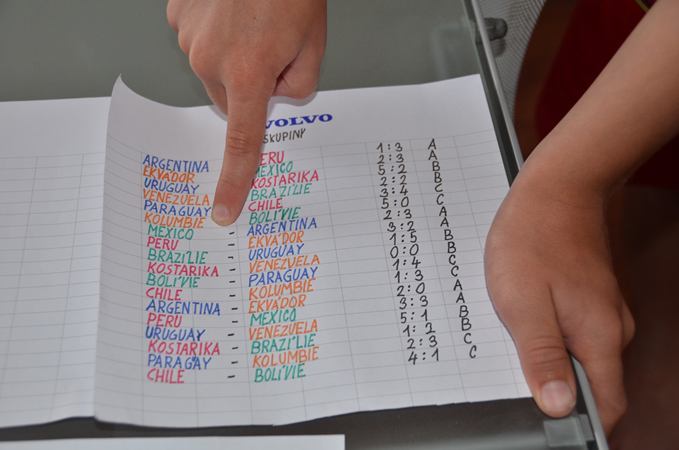 VOLVO
SKUPINY
ARGENTINA PERU 1:3 A
EKVADOR MEXICO 2:3 A
URUGUAY KOSTARIKA 5:2 B
VENEZUELA BRAZÍLIE 2:2 B
PARAGUAY CHILE 3:4 C
KOLUMBIE BOLÍVIE 5:0 C
MEXICO - ARGENTINA 2:3 A
PERU - EKVÁDOR 3:2 A
BRAZÍLIE - URUGUAY 1:5 B
KOSTARIKA - VENEZUELA 0:0 B
BOLÍVIE - PARAGUAY 1:4 C
CHILE - KOLUMBIE 1:3 C
ARGENTINA - EKVÁDOR 2:0 A
PERU - MEXICO 3:3 A
URUGUAY - VENEZUELA 5:1 B
KOSTARIKA - BRAZÍLIE 1:2 B
PARAGAY - KOLUMBIE 2:3 C
CHILE - BOLÍVIE 4:1 C